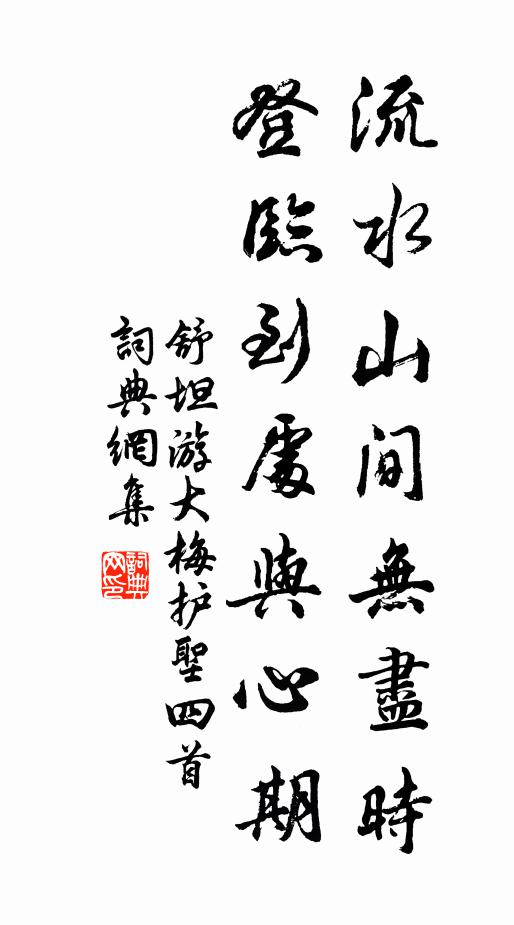 流水山间無盡時
登臨到處與心期
舒坦游大梅护聖四首
詞典網集
詞典網印